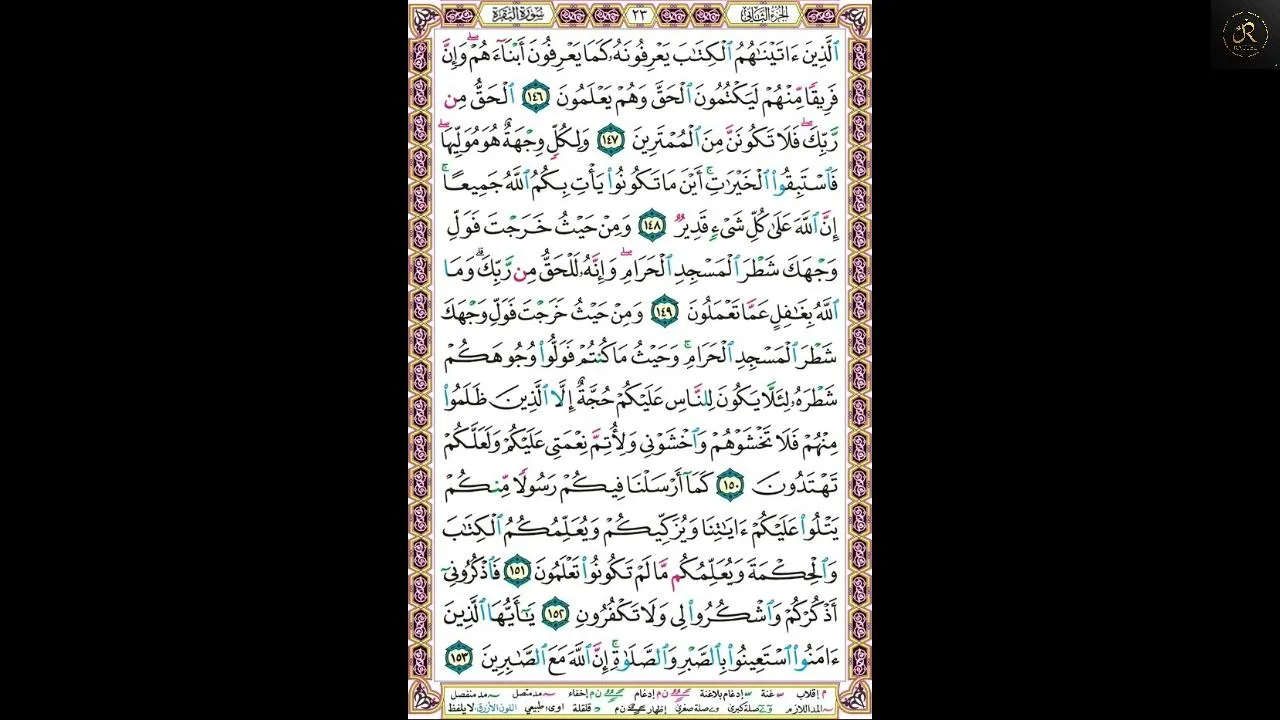 الجزء الثاني ٢٣ سورة البقرة
ٱلَّذِينَ ءَاتَيۡنَٰهُمُ ٱلۡكِتَٰبَ يَعۡرِفُونَهُۥ كَمَا يَعۡرِفُونَ أَبۡنَآءَهُمۡۖ وَإِنَّ
فَرِيقٗا مِّنۡهُمۡ لَيَكۡتُمُونَ ٱلۡحَقَّ وَهُمۡ يَعۡلَمُونَ ١٤٦ ٱلۡحَقُّ مِن
رَّبِّكَۖ فَلَا تَكُونَنَّ مِنَ ٱلۡمُمۡتَرِينَ ١٤٧ وَلِكُلّٖ وِجۡهَةٌ هُوَ مُوَلِّيهَاۖ
فَٱسۡتَبِقُواْ ٱلۡخَيۡرَٰتِۚ أَيۡنَ مَا تَكُونُواْ يَأۡتِ بِكُمُ ٱللَّهُ جَمِيعًاۚ
إِنَّ ٱللَّهَ عَلَىٰ كُلِّ شَيۡءٖ قَدِيرٞ ١٤٨ وَمِنۡ حَيۡثُ خَرَجۡتَ فَوَلِّ
وَجۡهَكَ شَطۡرَ ٱلۡمَسۡجِدِ ٱلۡحَرَامِۖ وَإِنَّهُۥ لَلۡحَقُّ مِن رَّبِّكَۗ وَمَا
ٱللَّهُ بِغَٰفِلٍ عَمَّا تَعۡمَلُونَ ١٤٩ وَمِنۡ حَيۡثُ خَرَجۡتَ فَوَلِّ وَجۡهَكَ
شَطۡرَ ٱلۡمَسۡجِدِ ٱلۡحَرَامِۚ وَحَيۡثُ مَا كُنتُمۡ فَوَلُّواْ وُجُوهَكُمۡ
شَطۡرَهُۥ لِئَلَّا يَكُونَ لِلنَّاسِ عَلَيۡكُمۡ حُجَّةٌ إِلَّا ٱلَّذِينَ ظَلَمُواْ
مِنۡهُمۡ فَلَا تَخۡشَوۡهُمۡ وَٱخۡشَوۡنِي وَلِأُتِمَّ نِعۡمَتِي عَلَيۡكُمۡ وَلَعَلَّكُمۡ
تَهۡتَدُونَ ١٥٠ كَمَآ أَرۡسَلۡنَا فِيكُمۡ رَسُولٗا مِّنكُمۡ
يَتۡلُواْ عَلَيۡكُمۡ ءَايَٰتِنَا وَيُزَكِّيكُمۡ وَيُعَلِّمُكُمُ ٱلۡكِتَٰبَ
وَٱلۡحِكۡمَةَ وَيُعَلِّمُكُم مَّا لَمۡ تَكُونُواْ تَعۡلَمُونَ ١٥١ فَٱذۡكُرُونِيٓ
أَذۡكُرۡكُمۡ وَٱشۡكُرُواْ لِي وَلَا تَكۡفُرُونِ ١٥٢ يَٰٓأَيُّهَا ٱلَّذِينَ
ءَامَنُواْ ٱسۡتَعِينُواْ بِٱلصَّبۡرِ وَٱلصَّلَوٰةِۚ إِنَّ ٱللَّهَ مَعَ ٱلصَّٰبِرِينَ ١٥٣
م إقلاب غنة إدغام بلاغنة ن م إدغام ن م إخفاء مد متصل مد منفصل
المد اللازم صلة كبرى صلة صغرى إظهار ن م قلقلة طبيعي اللون الأزرق لا يلفظ